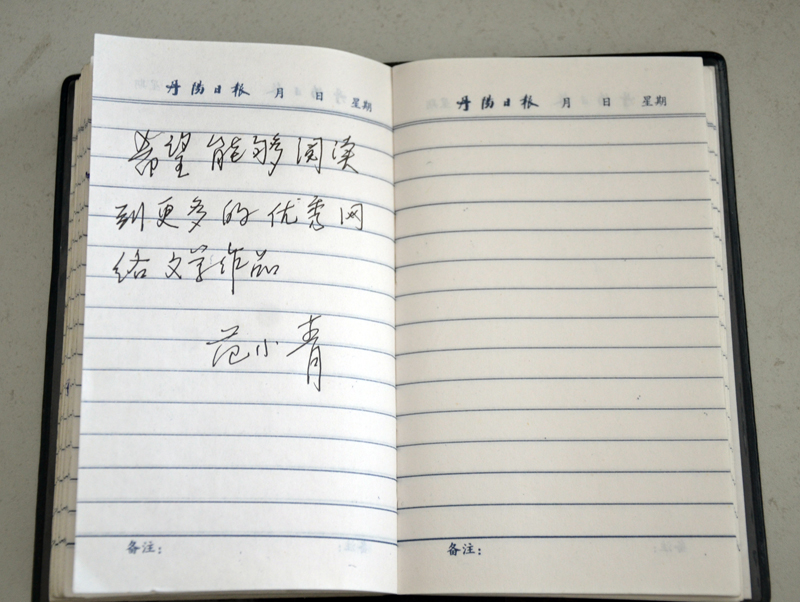 丹阳日报 月 日 星期
希望能够阅读
到更多的优秀网
络文学作品
范小青
备注：
丹阳日报 月 日 星期
备注：